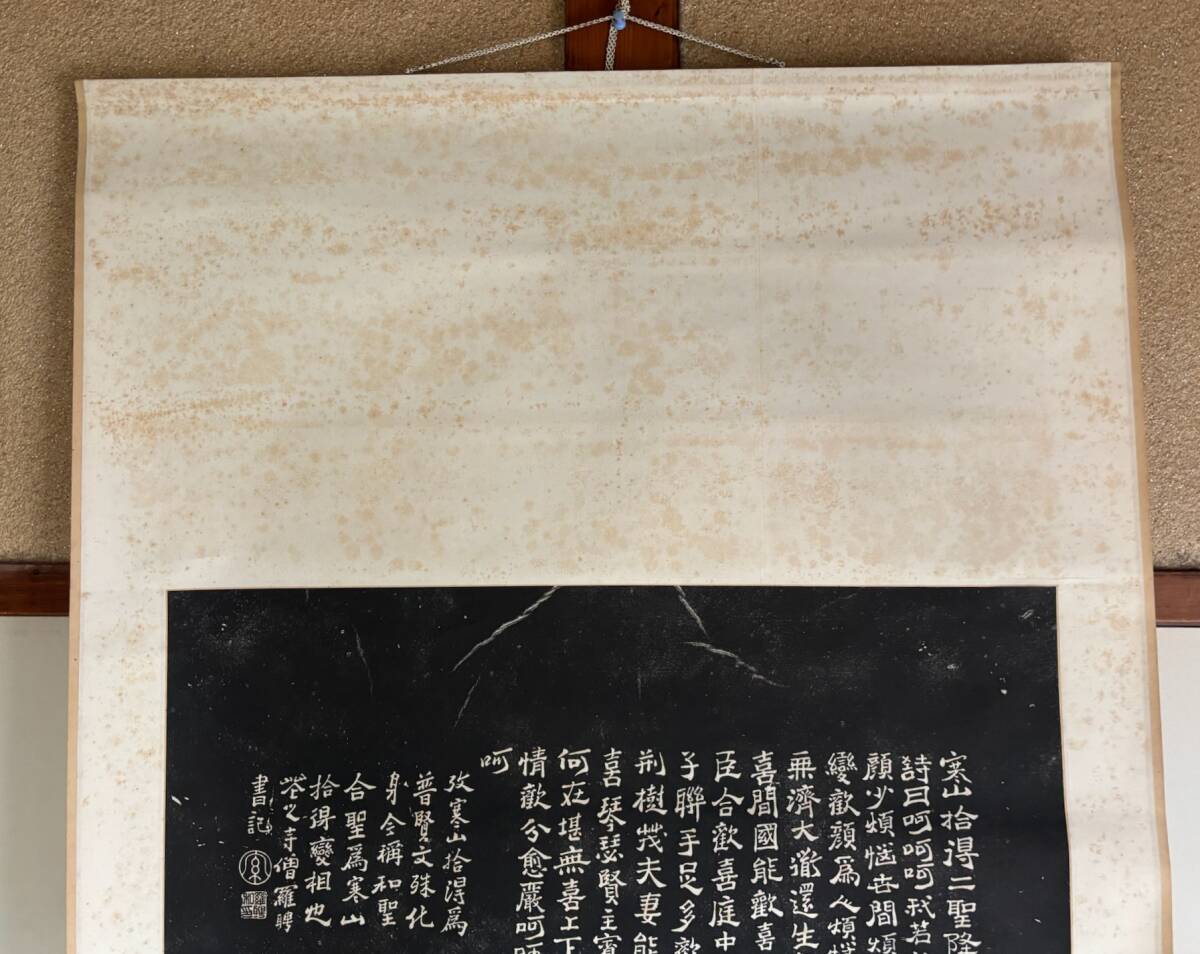 寒山拾得二聖降
詩曰呵呵呵我若
顏少煩惱世間煩
變歡顏爲人煩惱
無濟大道還生
喜間國能歡喜
臣合歡喜庭中
子聯手足多歡
荆樹茂夫妻能
喜琴瑟賢主賓
何在堪無喜上下
情歡分愈嚴呵呵
呵
攷寒山拾得爲
普賢文殊化
身今稱和聖
合聖爲寒山
拾得變相也
花之寺僧羅聘
書記